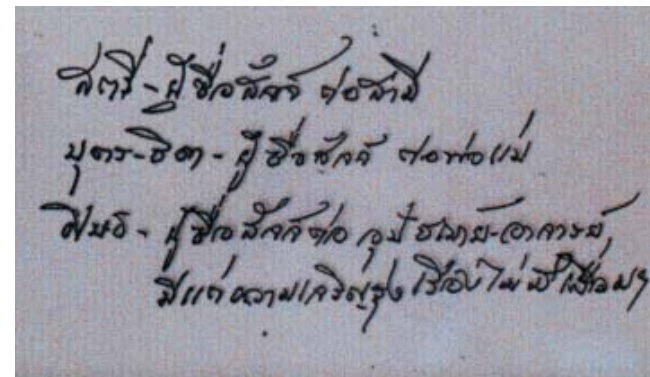 สตรี-ผู้ซื่อสัตย์ ต่อสามี
บุตร-ธิดา-ผู้ซื่อสัตย์ ต่อพ่อแม่
ศิษย์-ผู้ซื่อสัตย์ต่อ อุปัชฌาย์-อาจารย์,
มีแต่ความเจริญรุ่งเรืองไม่มีเสื่อมฯ